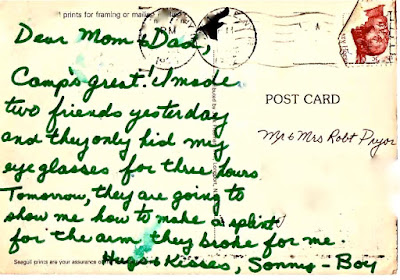 prints for framing or mailing
PM
Dear Mom & Dad,
Camp's great! I made
two friends yesterday
and they only hid my
eye glasses for three hours.
Tomorrow, they are going to
show me how to make a splint
for the arm they broke for me.
Hugs & Kisses, Sonny-Boy
POST CARD
Mr & Mrs Robt Pryor
Seagull prints are your assurance of